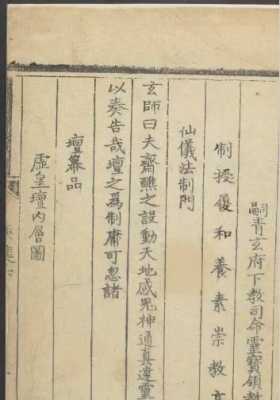 嗣青玄府下教司命靈寶領教
制授履和養素崇教高
仙儀法制門
玄師曰夫齋醮之設動天地感鬼神通真達靈
以奏告哉壇之爲制庸可忽諸
壇纂品
虛皇壇內層圖